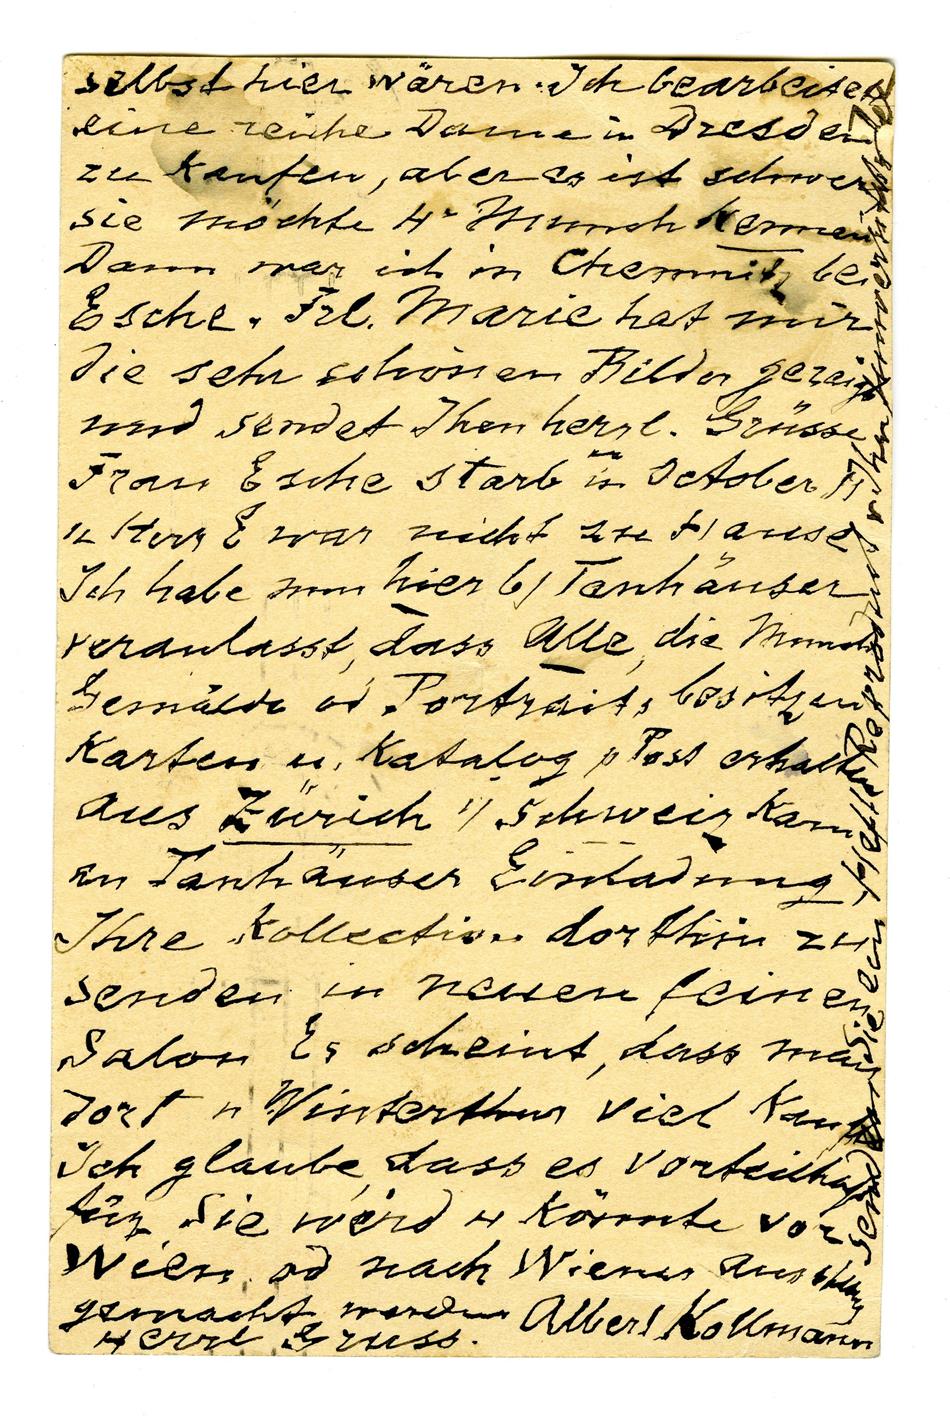 selbst hier wären. Ich bearbeitet
eine reiche Dame in Dresden
zu Kaufen, aber es ist schwer
sie möchte 4 Munch Kennen
Dann war ich in Chemnitz bei
Esche. Frl. Marie hat mir
die sehr schönen Bilder gezeigt
und sendet Ihnen herzl. Grüsse
Frau Esche starb in October 11
u Herr E war nicht zu Hause
Ich habe nun hier b/ Tanhäuser
veranlasst, dass Alle, die Munch
Gemälde od Portraits besitzen
Karten u. Katalog p Post erhalten
Aus Zürich i/ Schweiz Kam
an Tanhäuser Einladung
Ihre Kollection dorthin zu
senden in neuen feinen
Salon Es scheint, dass man
dort u Winterthur viel Kauft
Ich glaube, dass es vorteilhaft
für Sie wird u Könnte vor
Wien od nach Wiener Ausstellung
gemacht werden Albert Kollmann
Herzl Gruss.
Senden Sie ein Heft Reproduct v Ihn